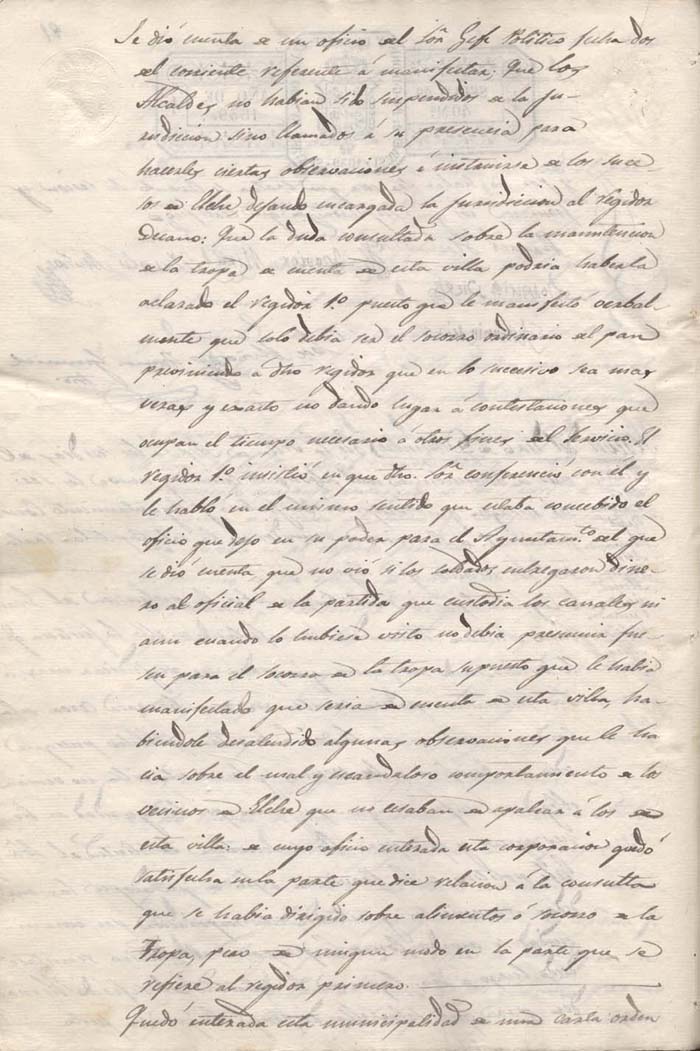 Se dió cuenta de un oficio del Sor. Gefe Politico fecha dos
del corriente referente á manifestar; Que los
Alcaldes no habian sido suspendidos de la Ju-
risdicion sino llamados á su presencia para
hacerles ciertas observaciones é instruirse de los suce-
sos de Elche dejando encargada la Jurisdicion al regidor
Decano: Que la duda consultada sobre la manutencion
de la tropa de cuenta de esta villa podria haberla
aclarado el regidor 1.º puesto que le manifestó verbal-
mente que solo debia ser el socorro ordinario del pan
previniendo á dho regidor que en lo sucesivo sea mas
veraz y exacto no dando lugar á contestaciones que
ocupan el tiempo necesario á otros fines del servicio. El
regidor 1.º insistió en que dho. Sor. conferenció con el y
le habló en el mismo sentido que estaba concebido el
oficio que dejo en su poder para el Ayuntam.to del que
se dió cuenta que no vió si los soldados entregaron dine-
ro al oficial de la partida que custodia los canales ni
aun cuando lo hubiese visto no debia presumir fue-
sen para el socorro de la tropa supuesto que le habia
manifestado que seria de cuenta de esta villa, ha-
biendole desatendido algunas observaciones que le ha-
cia sobre el mal y escandaloso comportamiento de los
vecinos de Elche que no cesaban de apalear á los de
esta villa: de cuyo oficio enterada esta corporacion quedó
satisfecha en la parte que dice relacion á la consulta
que se habia dirigido sobre alimentos ó socorro de la
Tropa, pero de ningun modo en la parte que se
refiere al regidor primero.
Quedó enterada esta municipalidad de una carta orden